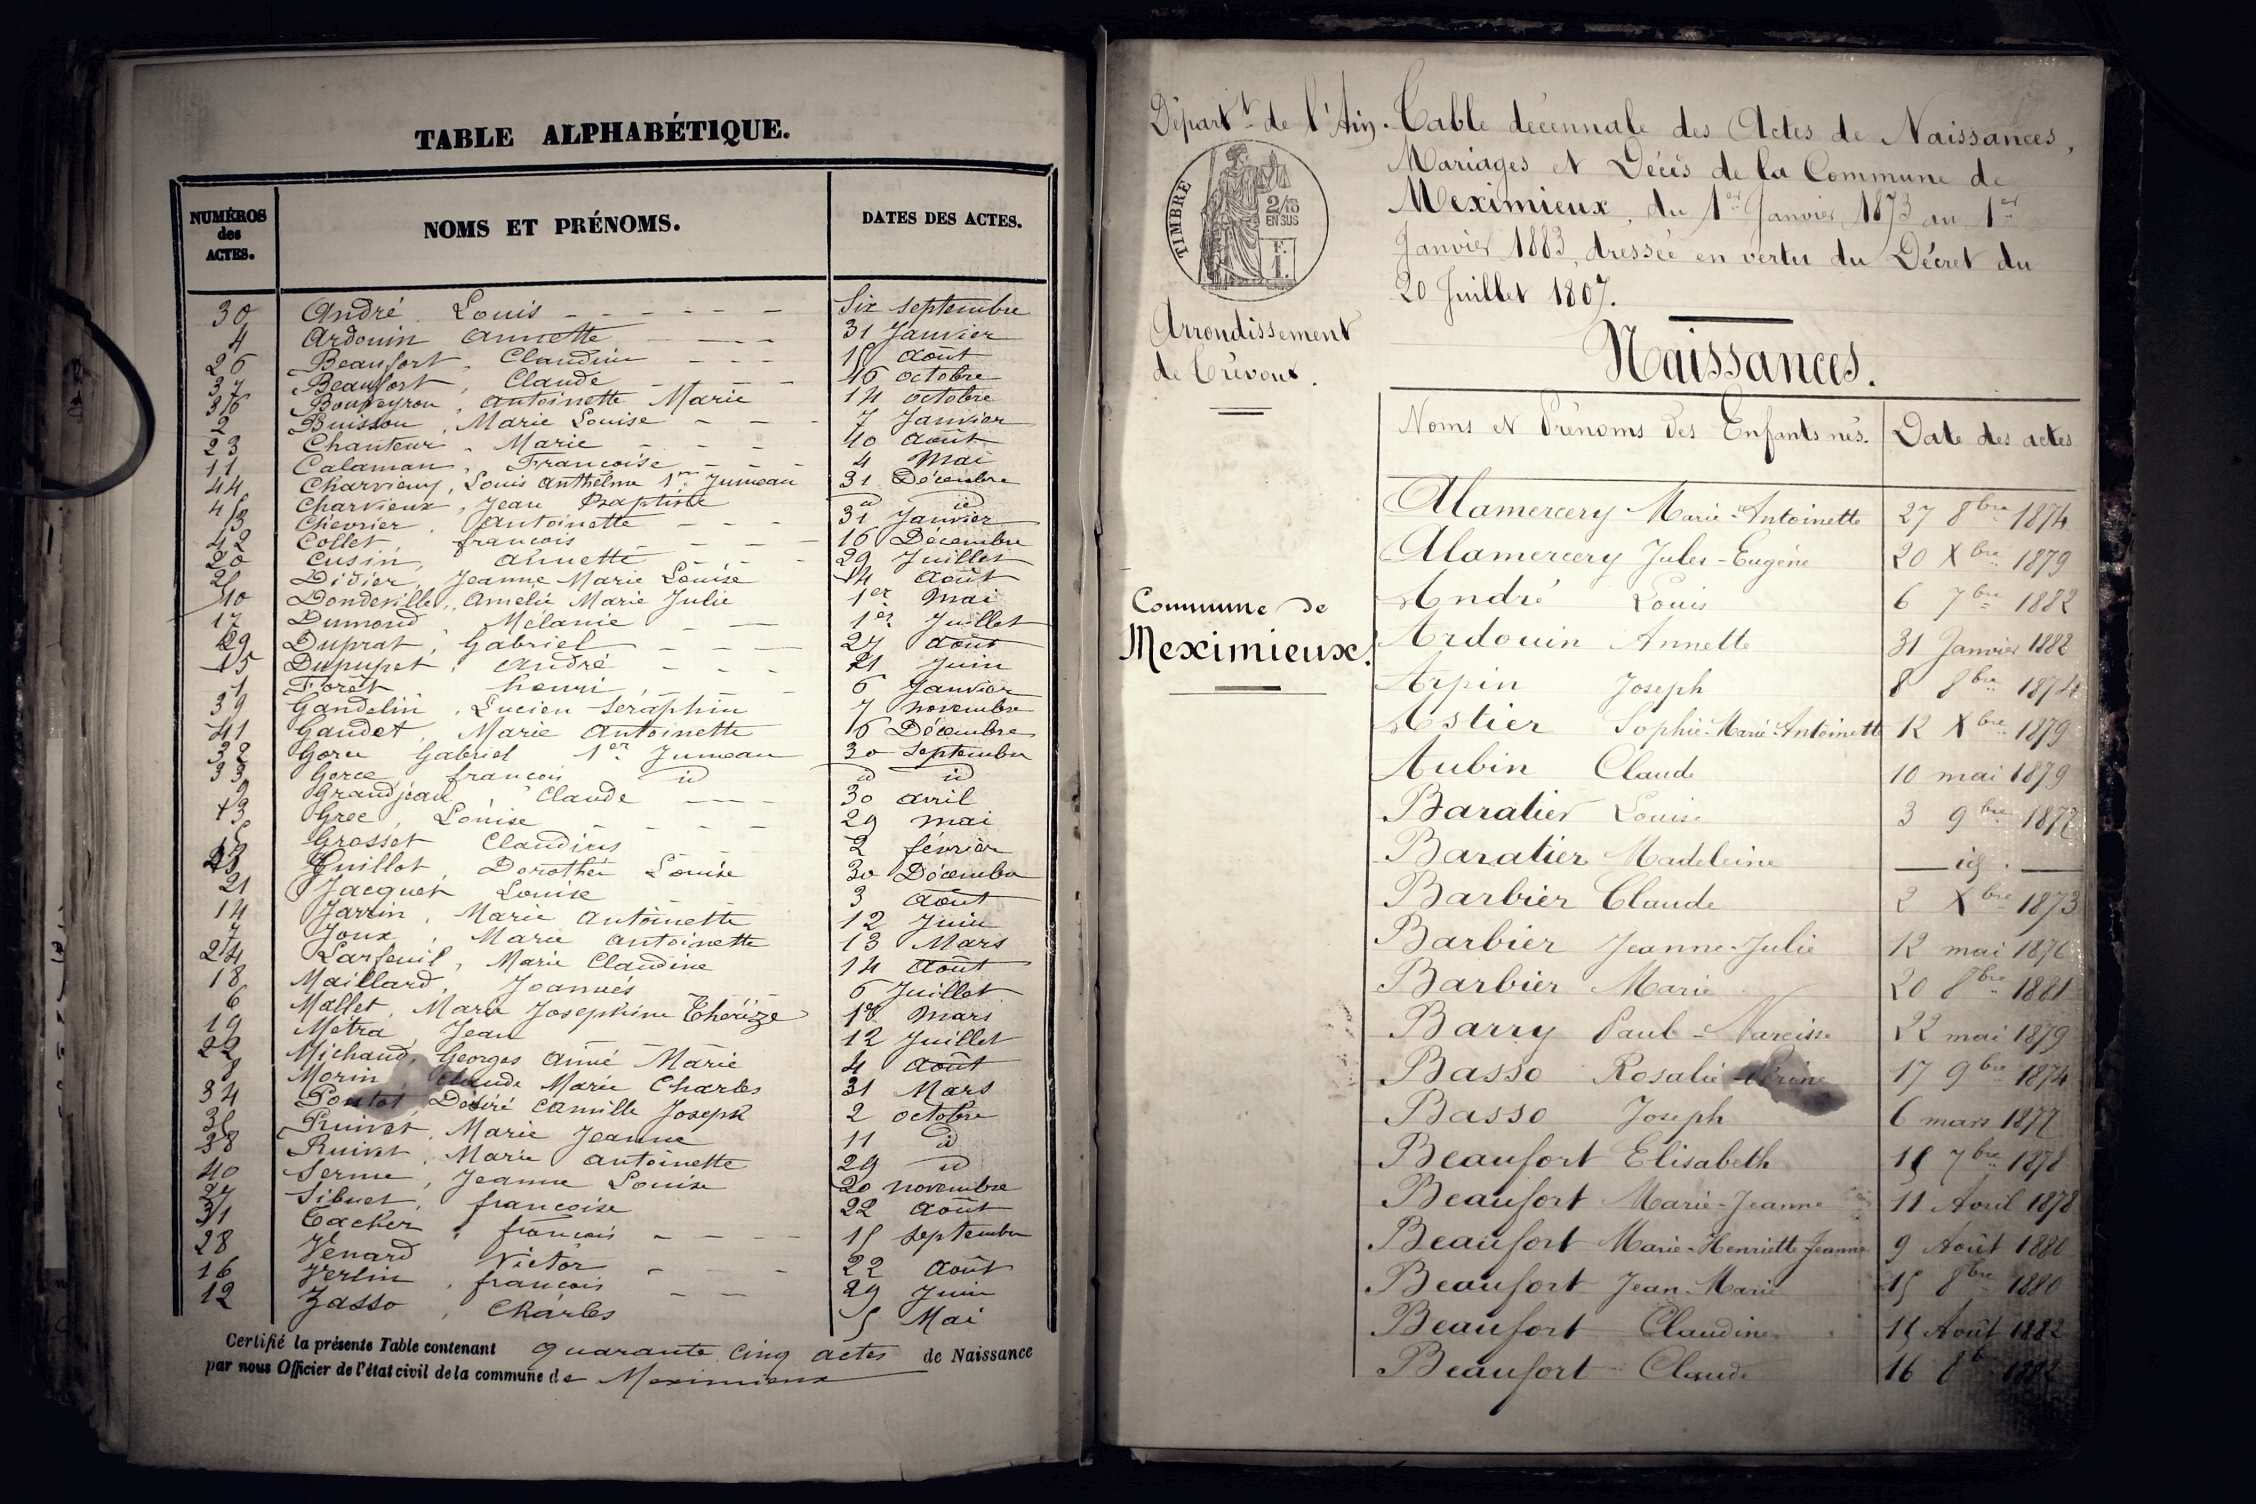 TABLE ALPHABÉTIQUE.
NUMÉROS des ACTES. NOMS ET PRÉNOMS. DATES DES ACTES.
30 André Louis Six septembre
4 Ardouin Annette 31 Janvier
26 Beaufort, Claudine 15 Août
37 Beaufort, Claude 16 octobre
36 Antoinette Marie 14 octobre
2 Buisson, Marie Louise 7 Janvier
23 Chanteur, Marie 10 Août
11 Calaman, Francoise 4 Mai
44 Charvieux, Louis Anthelme 1er Jumeau 31 Décembre
45 Charvieux, Jean Baptiste id id
3 Chevrier, Antoinette 31 Janvier
42 Collet, francois 16 Décembre
20 Cusin, Annette 29 Juillet
25 Didier, Jeanne Marie Louise 14 Août
10 Dondeville, Amélie Marie Julie 1er Mai
17 Dumond, Mélanie 1er Juillet
29 Duprat, Gabriel 27 Août
15 Dupupet, André 21 Juin
1 Forêt henri 6 Janvier
39 Gandelin, Lucien Séraphin 7 novembre
41 Gaudet, Marie Antoinette 6 Décembre
32 Gorce Gabriel 1er Jumeau 30 Septembre
33 Gorce, francois id id id
9 Grandjean Claude 30 avril
13 Grec, Louise 29 mai
5 Grosset Claudius 2 février
43 Guillot, Dorothée Louise 30 Décembre
21 Jacquet Louise 3 Août
14 Jarrin, Marie Antoinette 12 Juin
7 Joux, Marie Antoinette 13 Mars
24 Larfeuil, Marie Claudine 14 Août
18 Maillard, Joannès 6 Juillet
6 Mallet, Marie Joséphine Thérèze Mars
19 Métra Jean 12 Juillet
22 Michaud, Georges Aimé Marie 4 Août
8 Morin, Claude Marie Charles 31 Mars
34 Désiré Camille Joseph 2 octobre
35 Ruivet, Marie Jeanne 11 id
38 Ruivet, Marie Antoinette 29 id
40 Serme, Jeanne Louise 20 novembre
27 Sibuet, francoise 22 Août
31 Tacher, francois 15 Septembre
28 Venard Victor 22 Août
16 Verlin, francois 29 Juin
12 Zasso, Charles 5 Mai
Certifié la présente Table contenant quarante cinq actes de Naissance
par nous Officier de l'état civil de la commune de Meximieux
Départt de l'Ain.
TIMBRE 2/10 EN SUS
Arrondissement
de Trévoux.
Commune de
Meximieux.
Table décennale des Actes de Naissances,
Mariages et Décès de la Commune de
Meximieux, du 1er Janvier 1873 au 1er
Janvier 1883, dressée en vertu du Décret du
20 Juillet 1807.
Naissances.
Noms et Prénoms des Enfants nés. Date des actes
Alamercery Marie-Antoinette 27 8bre 1874
Alamercery Jules-Eugène 20 Xbre 1879
André Louis 6 7bre 1882
Ardouin Annette 31 Janvier 1882
Arpin Joseph 8 8bre 1874
Astier Sophie-Marie-Antoinette 12 Xbre 1879
Aubin Claude 10 mai 1879
Baratier Louise 3 9bre 1877
Baratier Madeleine id.
Barbier Claude 2 Xbre 1873
Barbier Jeanne-Julie 12 mai 1876
Barbier Marie 20 8bre 1881
Barry Paul-Narcisse 22 mai 1879
Basso Rosalie 17 9bre 1874
Basso Joseph 6 mars 1877
Beaufort Elisabeth 15 7bre 1878
Beaufort Marie-Jeanne 11 Avril 1878
Beaufort Marie-Henriette-Jeanne 9 Août 1880
Beaufort Jean-Marie 15 8bre 1880
Beaufort Claudine 15 Août 1882
Beaufort Claude 16 8bre 1882